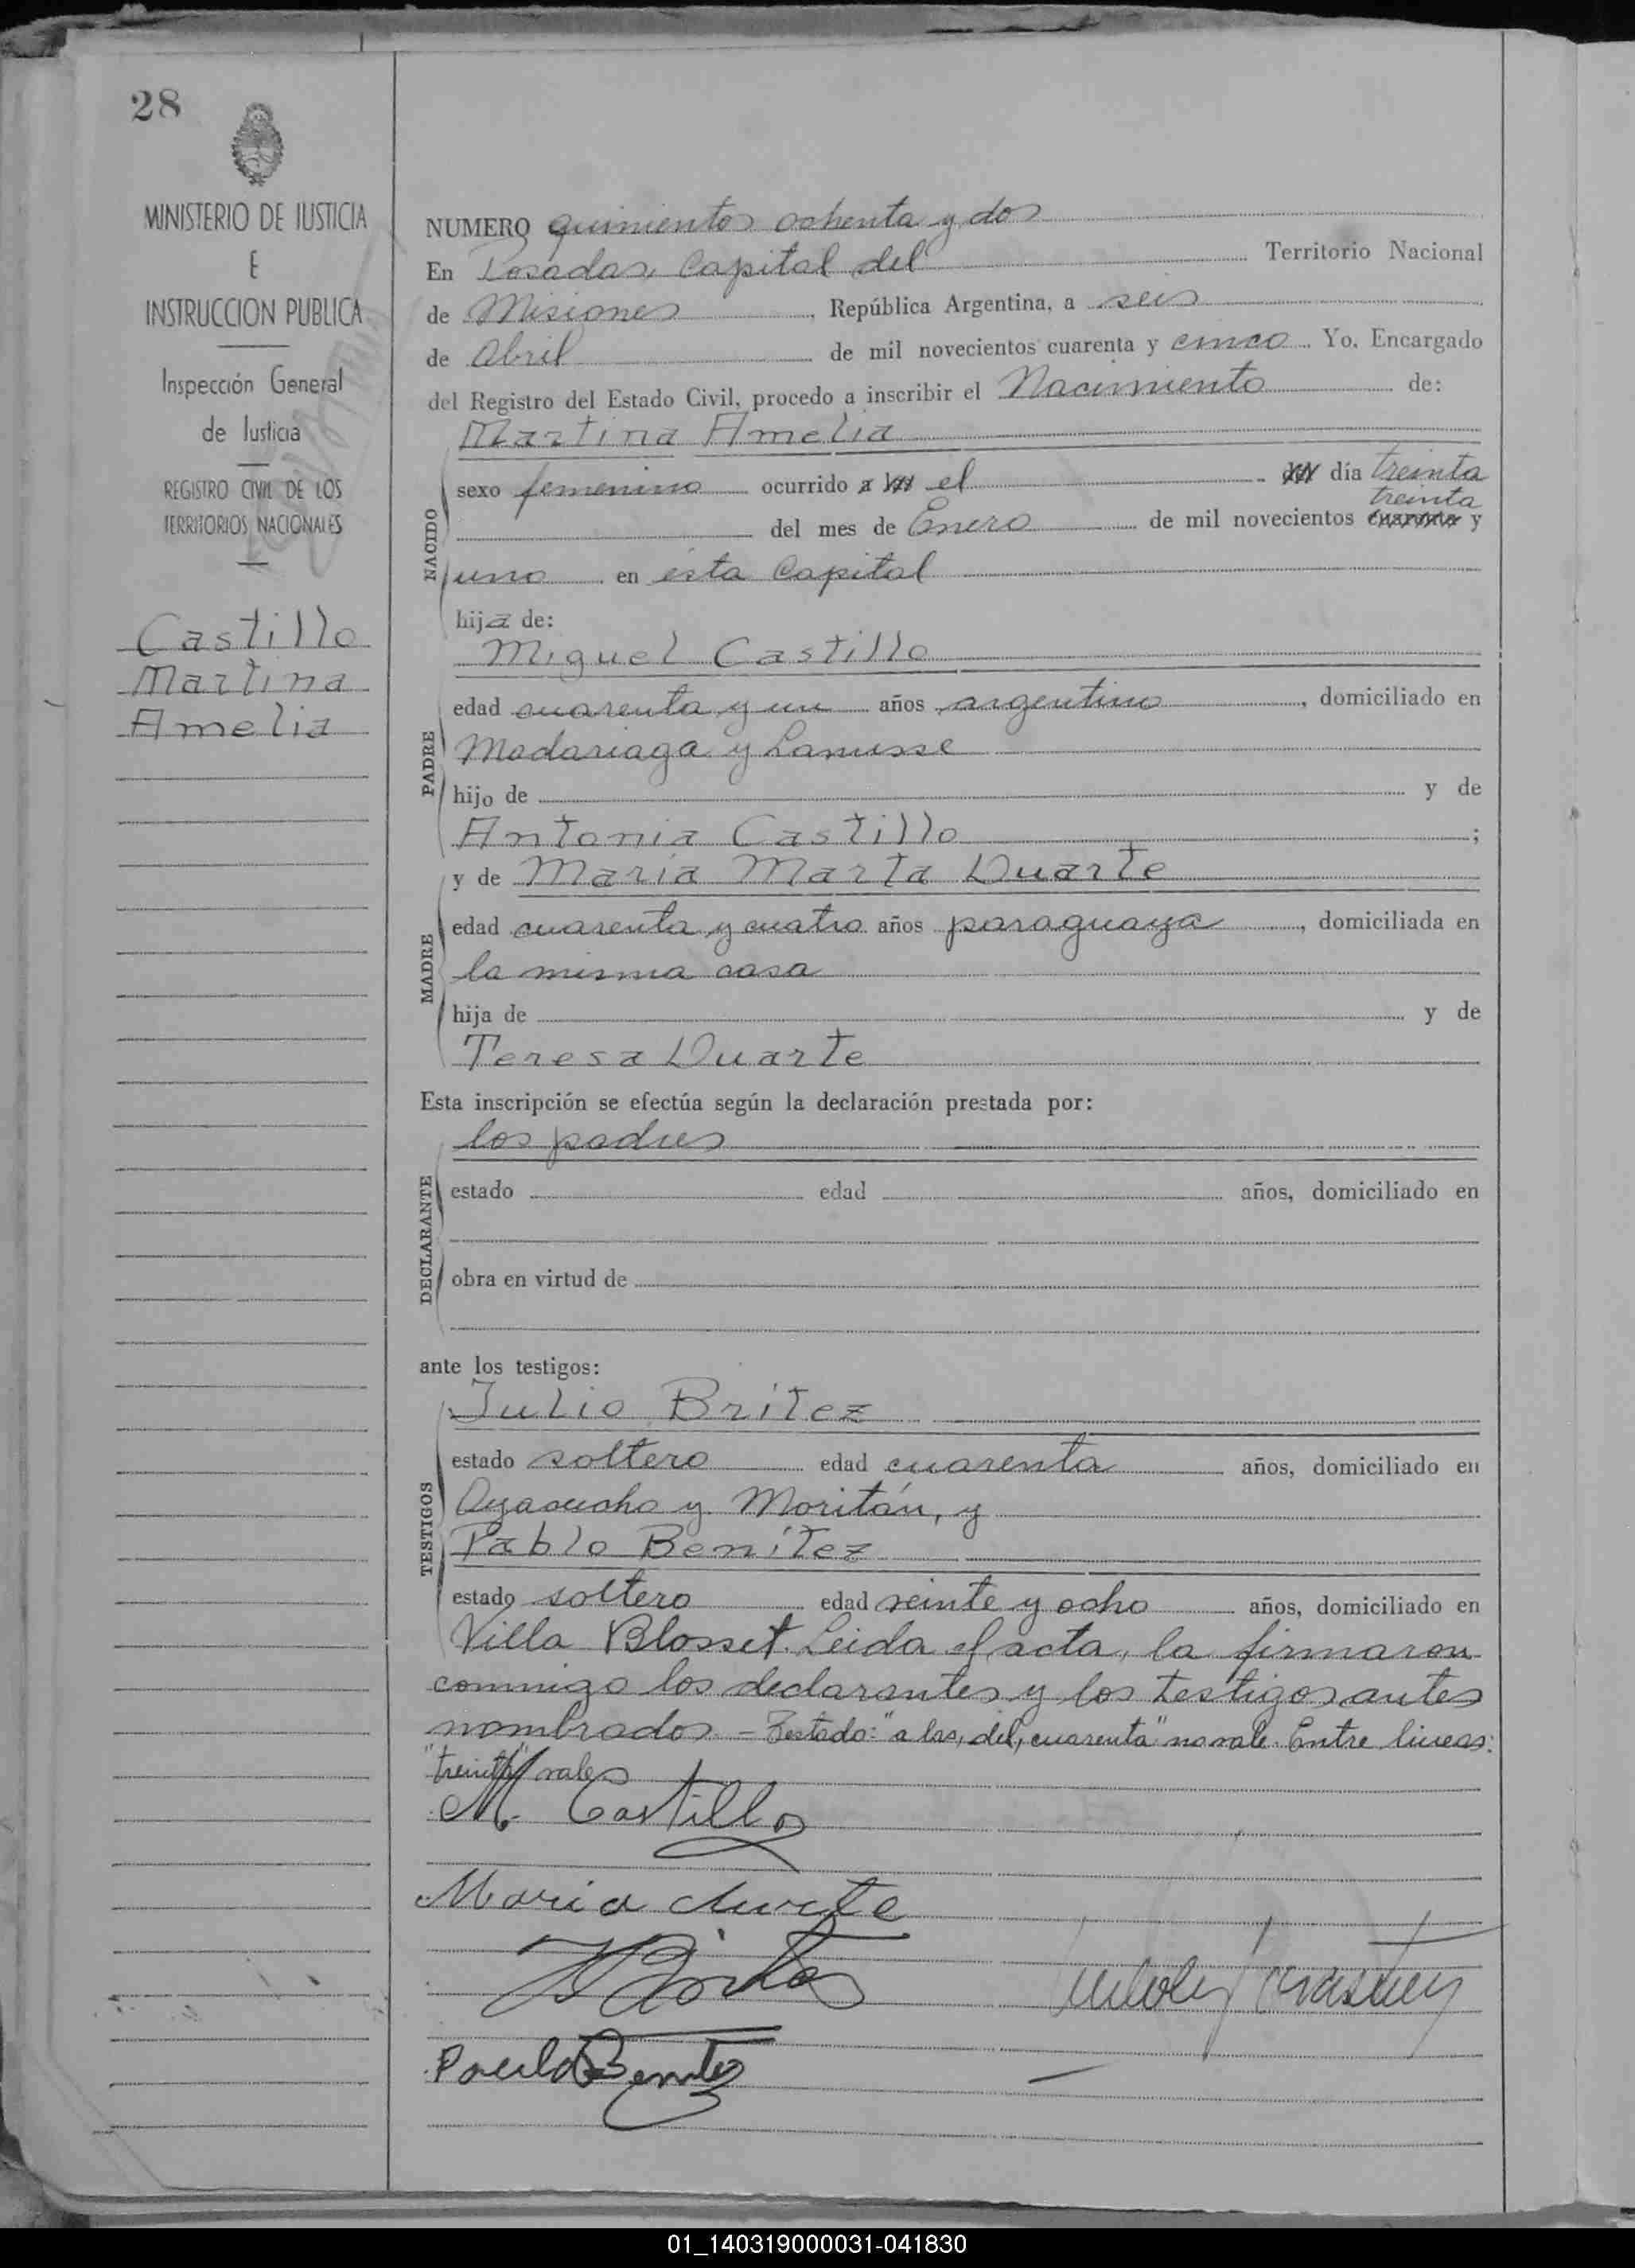 28
MINISTERIO DE JUSTICIA
E
INSTRUCCION PUBLICA
Inspección General
de Justicia
REGISTRO CIVIL DE LOS
TERRITORIOS NACIONALES
Castillo
Martina
Amelia
NUMERO quinientos ochenta y dos
En Posadas, Capital del Territorio Nacional
de Misiones, República Argentina, a seis
de Abril de mil novecientos cuarenta y cinco. Yo, Encargado
del Registro del Estado Civil, procedo a inscribir el Nacimiento de:
Martina Amelia
NACIDO
sexo femenino ocurrido a las el del día treinta
treinta
del mes de Enero de mil novecientos cuarenta y
uno en esta Capital
hija de:
Miguel Castillo
PADRE
edad cuarenta y un años argentino, domiciliado en
Madariaga y Lanusse
hijo de y de
Antonia Castillo;
y de María Marta Duarte
MADRE
edad cuarenta y cuatro años paraguaya, domiciliada en
la misma casa
hija de y de
Teresa Duarte
Esta inscripción se efectúa según la declaración prestada por:
los padres
DECLARANTE
estado edad años, domiciliado en
obra en virtud de
ante los testigos:
Julio Brítez
TESTIGOS
estado soltero edad cuarenta años, domiciliado en
Ayacucho y Moritán, y
Pablo Benítez
estado soltero edad veinte y ocho años, domiciliado en
Villa Blosset. Leida el acta, la firmaron
conmigo los declarantes y los testigos antes
nombrados. - Testado: "a las, del, cuarenta" no vale. Entre lineas:
"treinta" vale
M. Castillo
Maria duarte
Paulo Benites
01_140319000031-041830